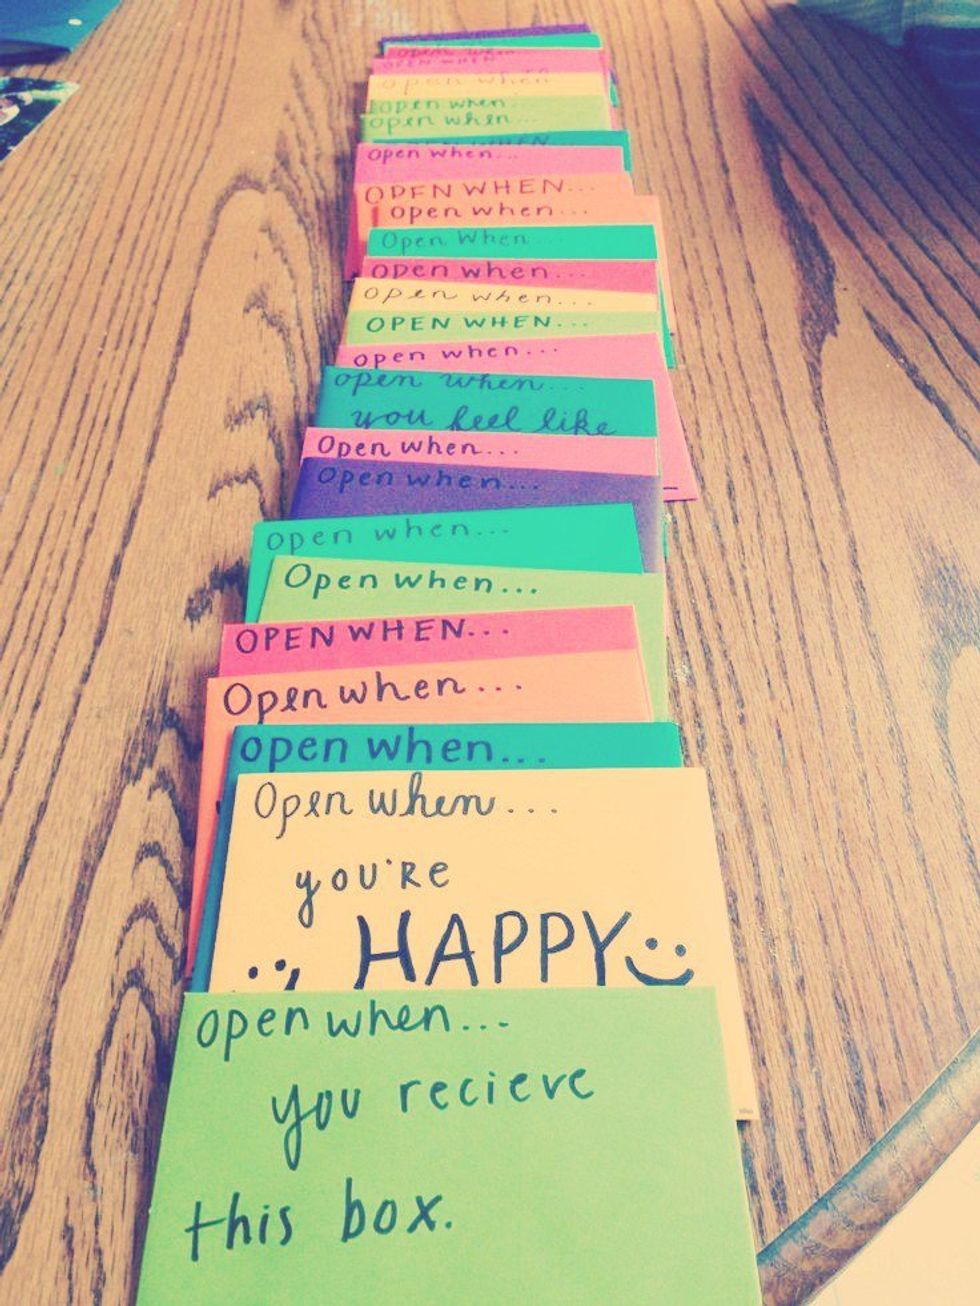 open when
OPEN WHEN
open when
open when...
open when...
OPEN WHEN...
open when...
OPEN WHEN...
open when...
Open When...
open when...
open when...
OPEN WHEN...
open when...
open when...
you feel like
Open when...
Open when...
open when...
Open when...
OPEN WHEN...
Open when...
open when...
Open when...
you're
HAPPY
open when...
you recieve
this box.